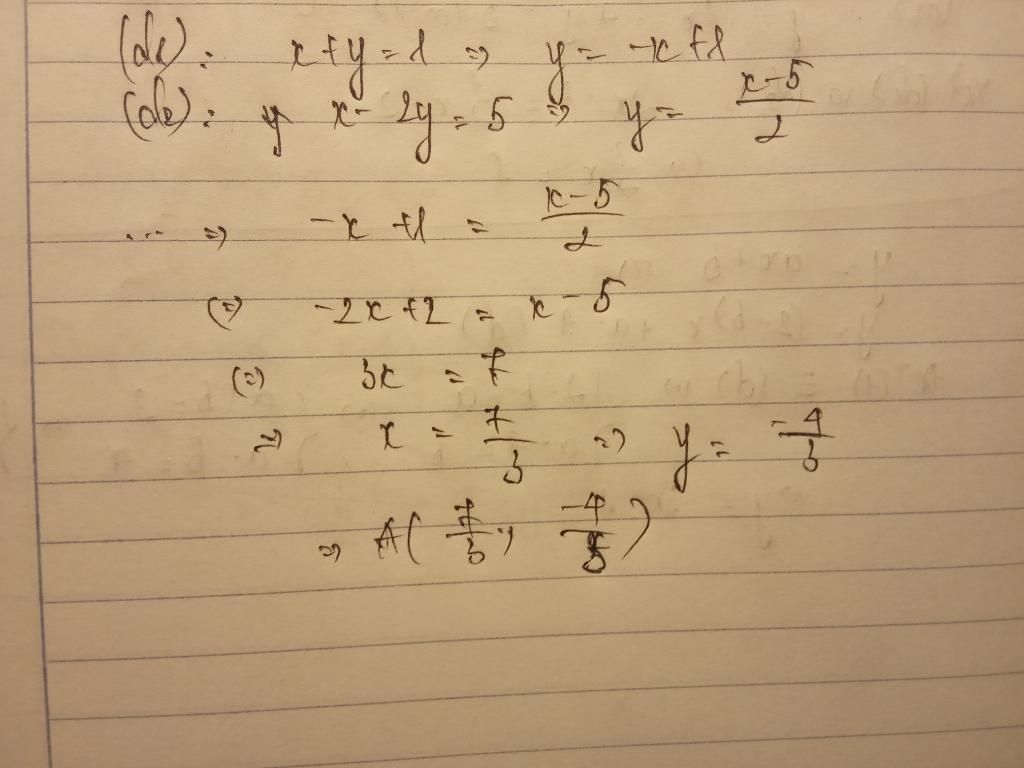 (d1): x+y=1 => y= -x+1
(d2): y x- 2y=5 => y= \frac{x-5}{2}
... => -x +1 = \frac{x-5}{2}
(=) -2x+2 = x-5
(=) 3x = 7
=> x = \frac{7}{3} => y= \frac{-4}{3}
=> A( \frac{7}{3}; \frac{-4}{3})